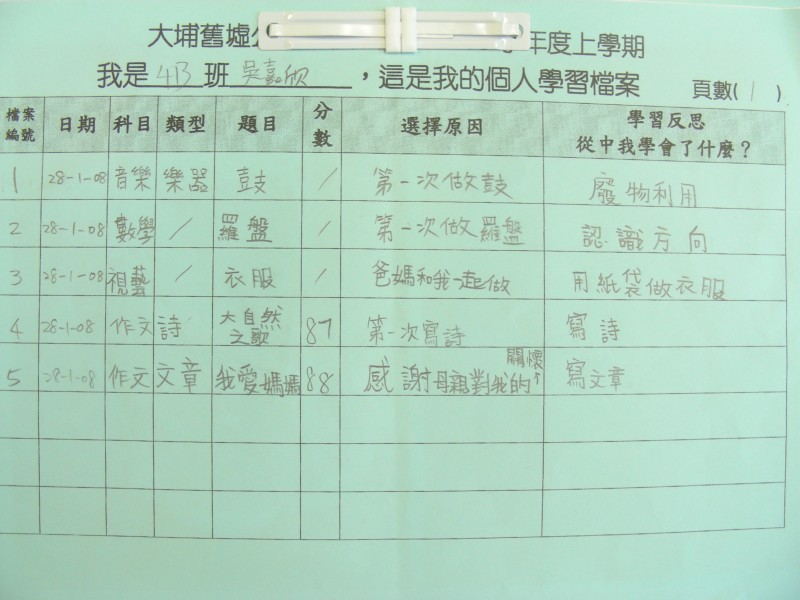 大埔舊墟 年度上學期
我是4B班吳嘉欣,這是我的個人學習檔案 頁數(1)
檔案編號 日期 科目 類型 題目 分數 選擇原因 學習反思 從中我學會了什麼?
1 28-1-08 音樂 樂器 鼓 / 第一次做鼓 廢物利用
2 28-1-08 數學 / 羅盤 / 第一次做羅盤 認識方向
3 28-1-08 視藝 / 衣服 / 爸媽和我一起做 用紙袋做衣服
4 28-1-08 作文 詩 大自然之歌 87 第一次寫詩 寫詩
5 28-1-08 作文 文章 我愛媽媽 88 感謝母親對我的關懷 寫文章